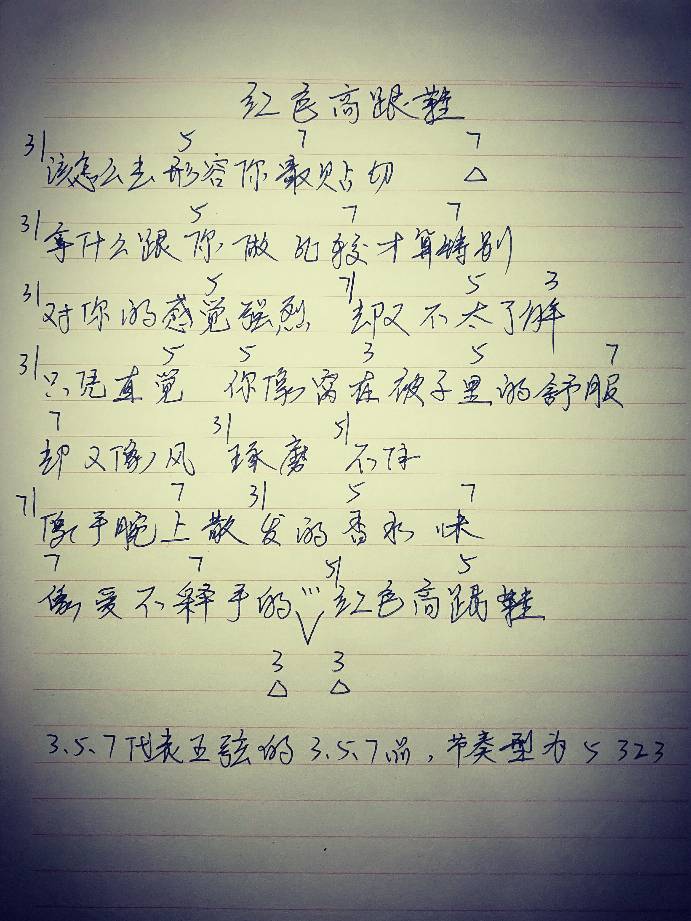 红色高跟鞋
3| 5 7 7
该怎么去形容你最贴切 △
3| 5 7 7
拿什么跟你做比较才算特别
3| 5 7| 5 3
对你的感觉强烈 却又不太了解
3| 5 5 3 5 7
只凭直觉 你像窝在被子里的舒服
7 3| 5|
却又像风 琢磨不住
7| 7 3| 5 7
像手腕上散发的香水味
7 7 5| 5
像爱不释手的"'红色高跟鞋
3 3
△ △
3.5.7代表五弦的3.5.7品，节奏型为5323